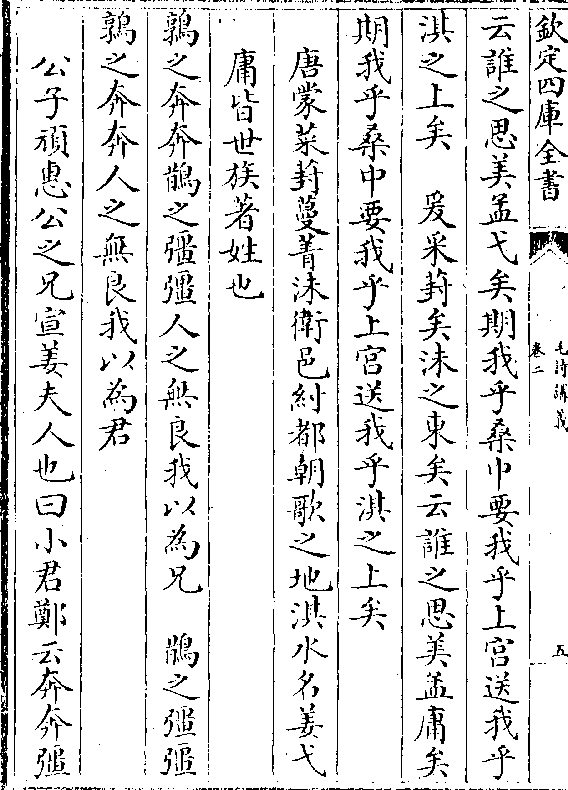 欽定四庫全書
毛詩講義
卷二
五
云誰之思美孟弋矣期我乎桑中要我乎上宮送我乎
淇之上矣　爰采葑矣沬之東矣云誰之思美孟庸矣
期我乎桑中要我乎上宮送我乎淇之上矣
唐蒙菜葑蔓菁沬衛邑紂都朝歌之地淇水名姜弋
庸皆世族著姓也
鶉之奔奔鵲之彊彊人之無良我以為兄　鵲之彊彊
鶉之奔奔人之無良我以為君
公子頑惠公之兄宣姜夫人也曰小君鄭云奔奔彊